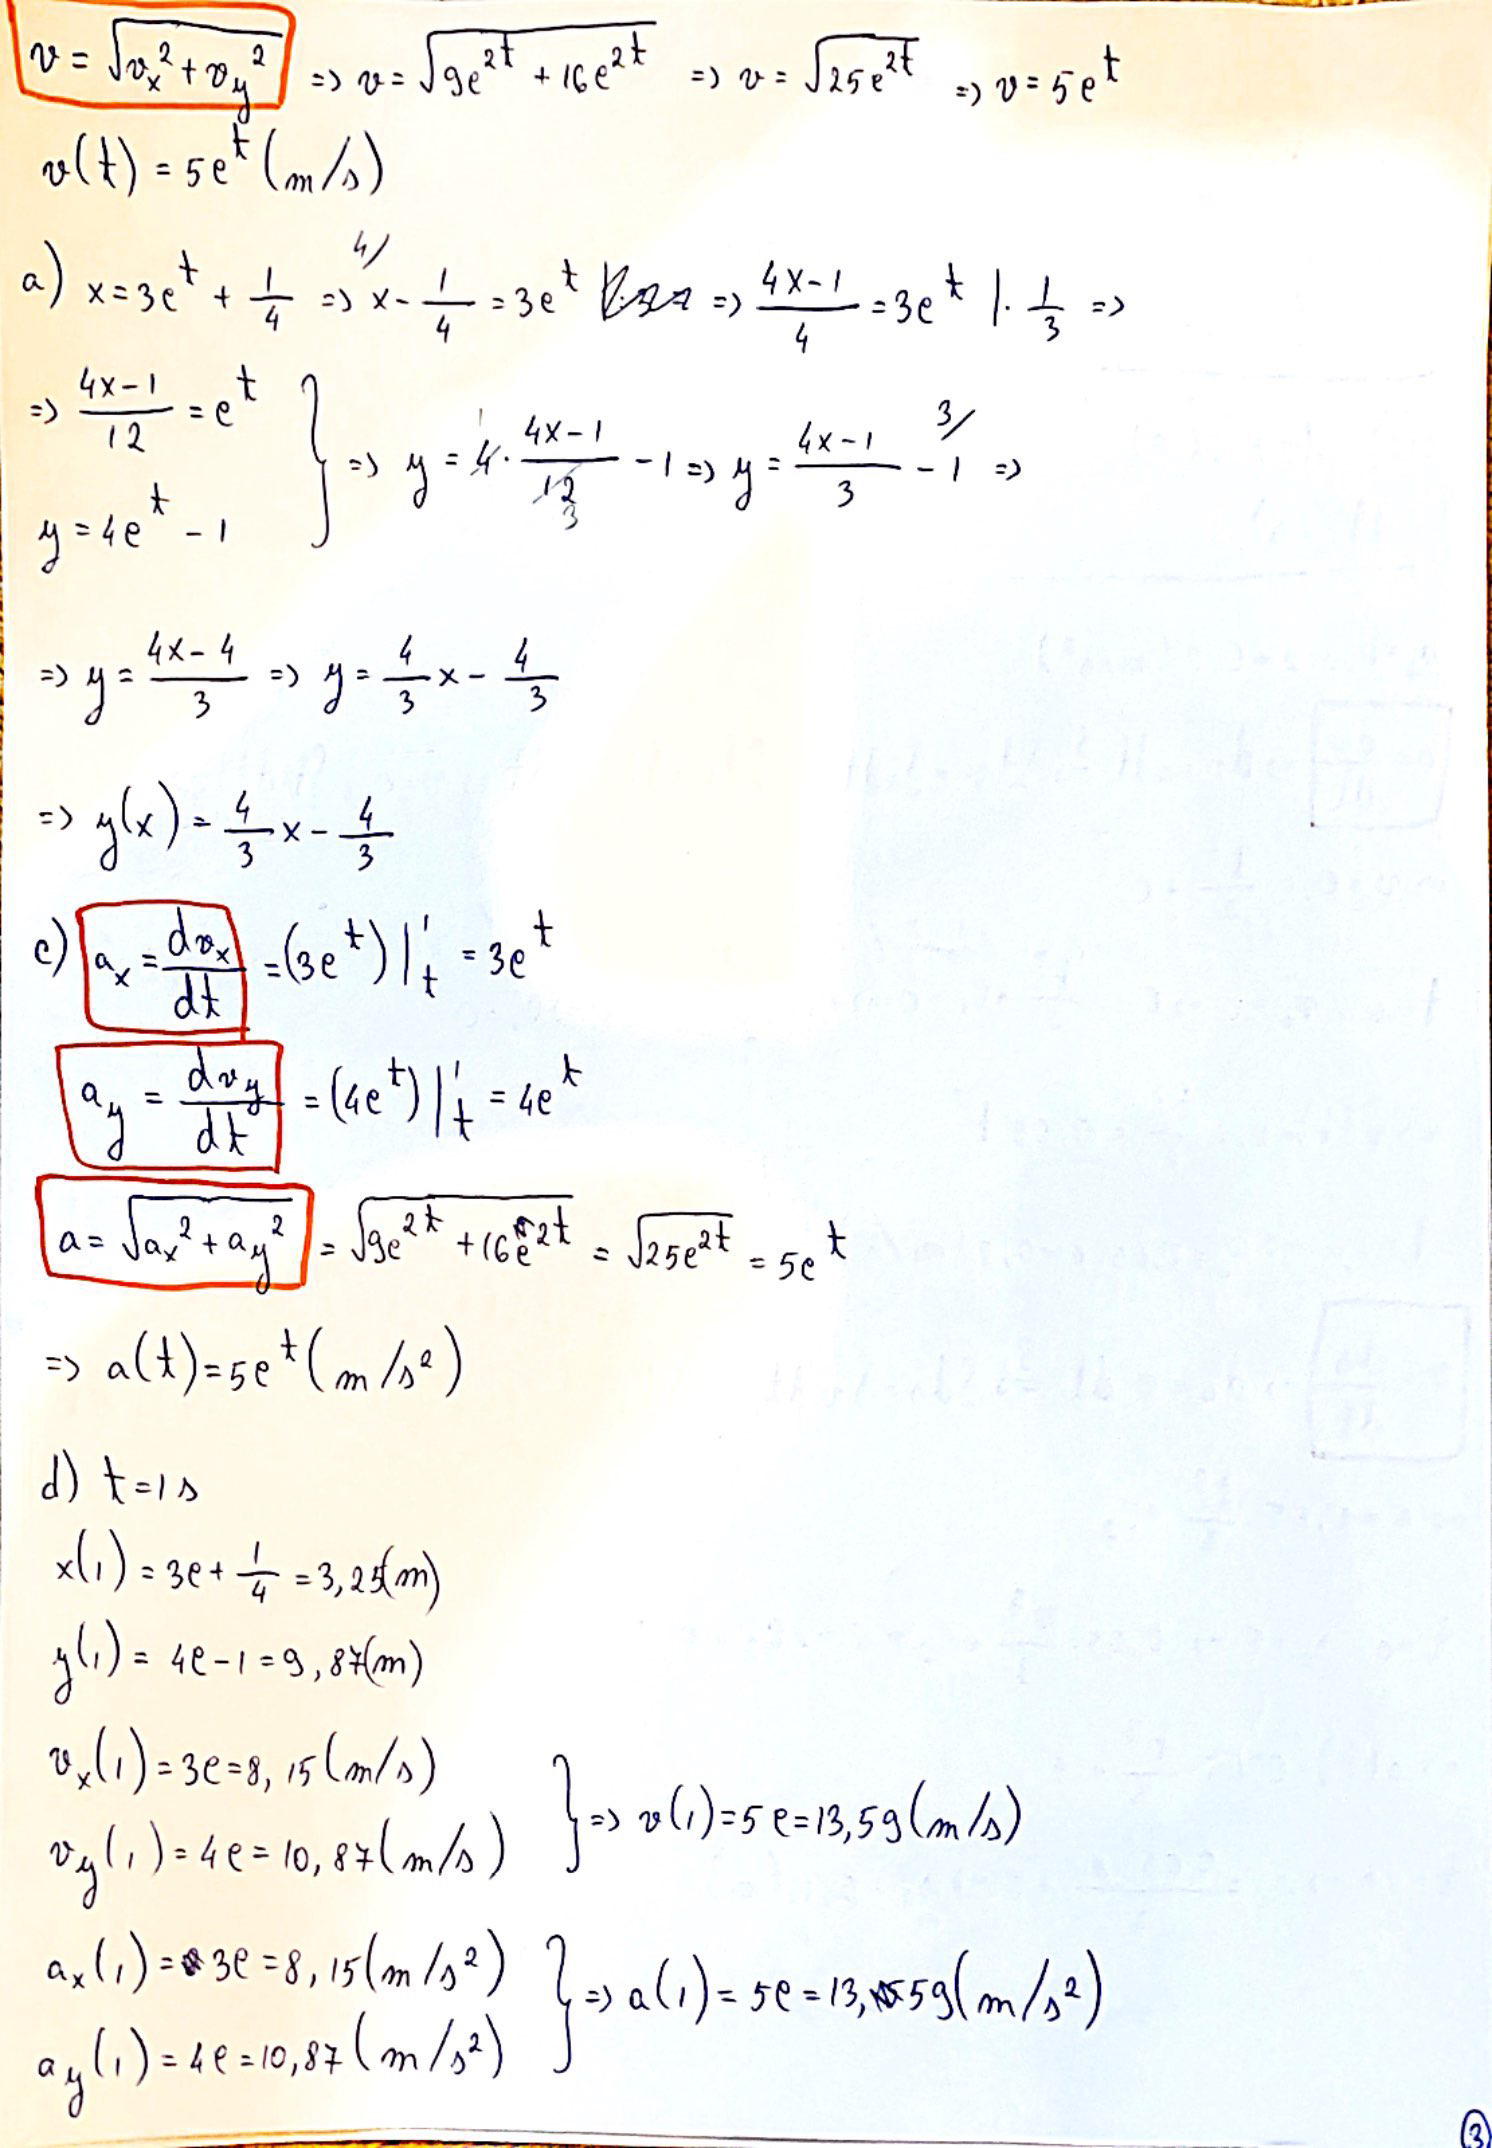 v = √(vx² + vy²) => v = √(9e^2t + 16e^2t) => v = √(25e^2t) => v = 5e^t
v(t) = 5e^t (m/s)
a) x = 3e^t + 1/4 => ⁴⁾x - 1/4 = 3e^t => (4x-1)/4 = 3e^t |· 1/3 =>
=> (4x-1)/12 = e^t
y = 4e^t - 1 } => y = 4 · (4x-1)/12 - 1 => y = (4x-1)/3 - ³⁾1 =>
=> y = (4x-4)/3 => y = 4/3 x - 4/3
=> y(x) = 4/3 x - 4/3
c) ax = dvx/dt = (3e^t)|'t = 3e^t
ay = dvy/dt = (4e^t)|'t = 4e^t
a = √(ax² + ay²) = √(9e^2t + 16e^2t) = √(25e^2t) = 5e^t
=> a(t) = 5e^t (m/s²)
d) t = 1 s
x(1) = 3e + 1/4 = 3,25(m)
y(1) = 4e - 1 = 9,87(m)
vx(1) = 3e = 8,15 (m/s)
vy(1) = 4e = 10,87 (m/s) } => v(1) = 5e = 13,59 (m/s)
ax(1) = 3e = 8,15 (m/s²)
ay(1) = 4e = 10,87 (m/s²) } => a(1) = 5e = 13,59 (m/s²)
3